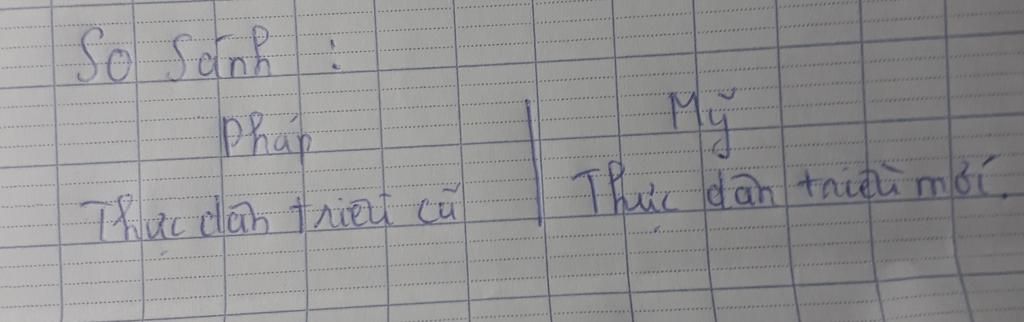 So sánh :
Pháp
Thực dân triều cũ
Mỹ
Thực dân triều mới.